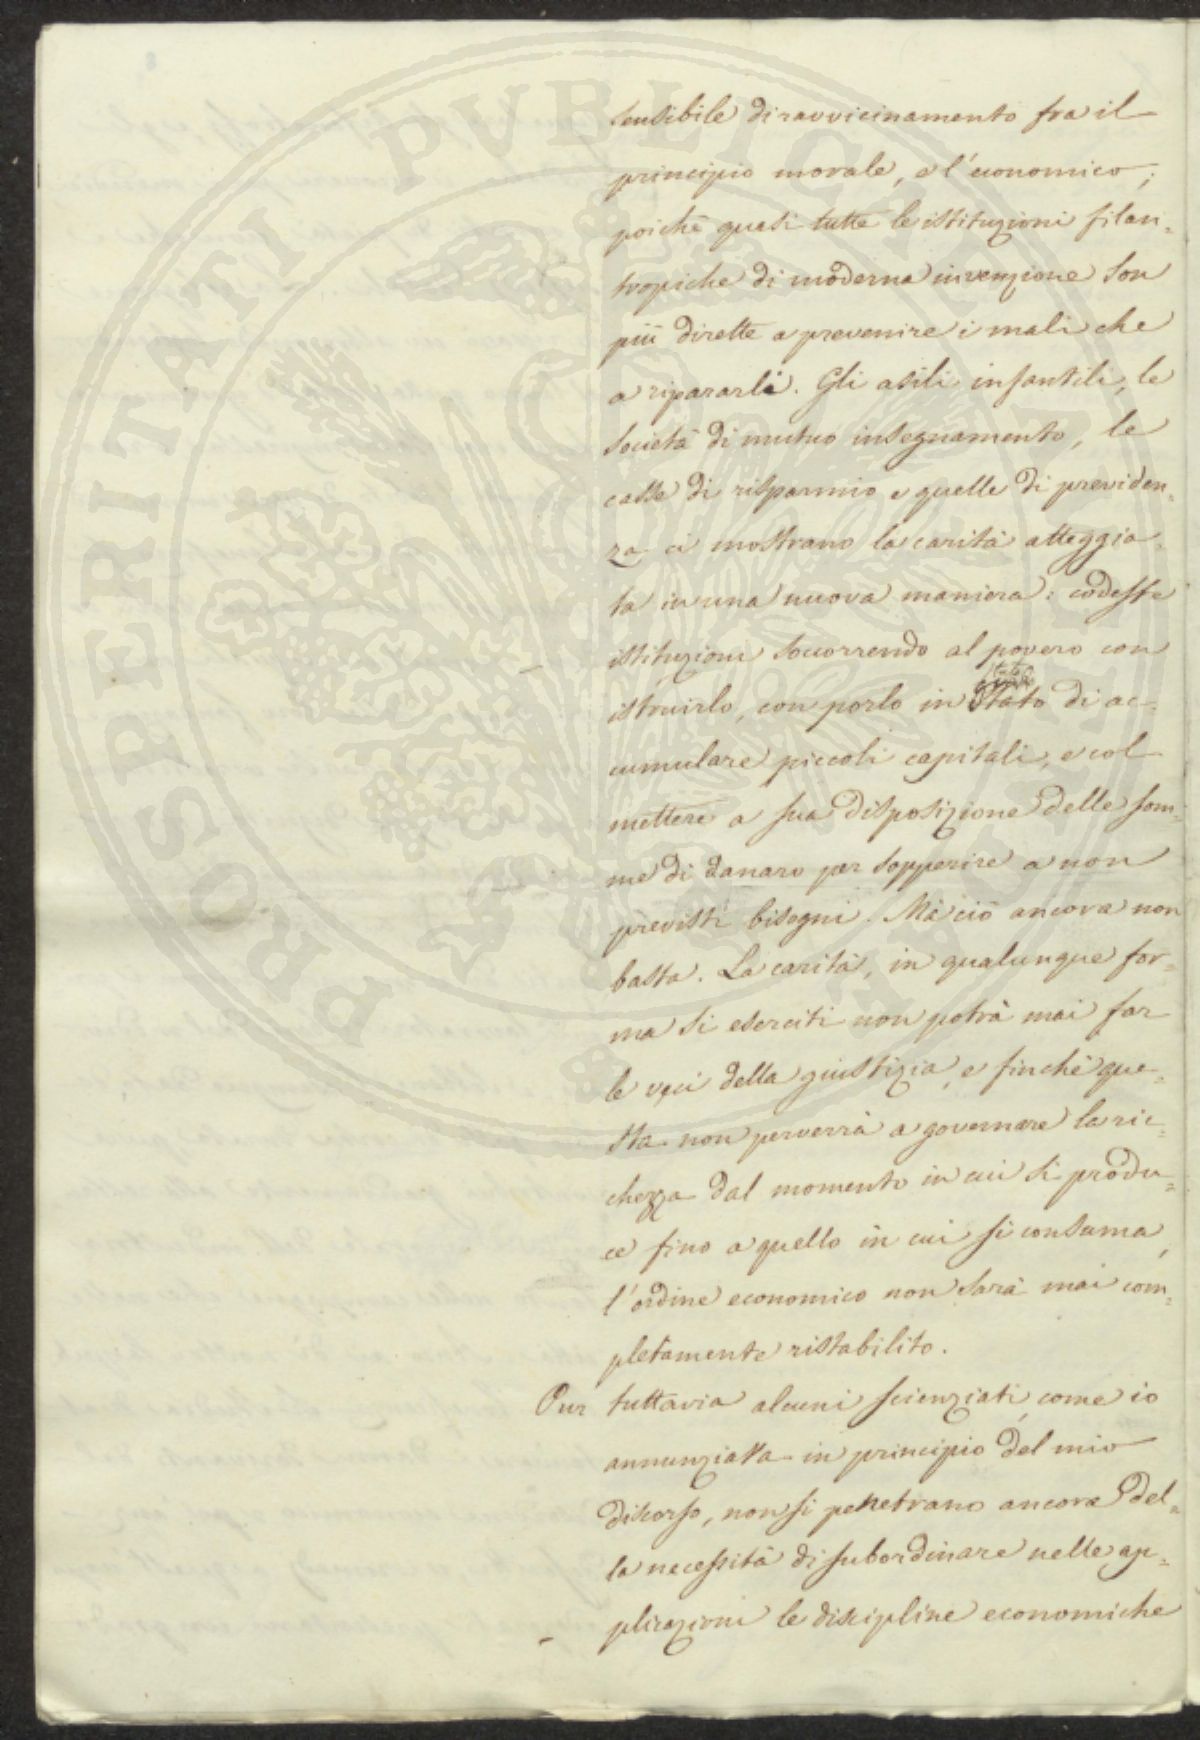 sensibile di ravvicinamento fra il
principio morale, e l'economico;
poichè quasi tutte le istituzioni filan=
tropiche di moderna invenzione son
più dirette a prevenire i mali che
a ripararli. Gli asili infantili, le
società di mutuo insegnamento, le
casse di risparmio e quelle di previden=
za ci mostrano la carità atteggia=
ta in una nuova maniera: codeste
istituzioni soccorrendo al povero con
istruirlo, con porlo in stato di ac=
cumulare piccoli capitali, e col
mettere a sua disposizione delle som=
me di danaro per sopperire a non
previsti bisogni. Mà ciò ancora non
basta. La carità, in qualunque for=
ma si eserciti non potrà mai far
le veci della giustizia, e finchè que=
sta non perverrà a governare la ric=
chezza dal momento in cui si produ=
ce fino a quello in cui si consuma,
l'ordine economico non sarà mai com=
pletamente ristabilito.
Pur tuttavia alcuni scienziati, come io
annunziava in principio del mio
discorso, non si penetrano ancora del=
la necessità di subordinare nelle ap=
plicazioni le discipline economiche
PROSPERITATI PVBLICAE